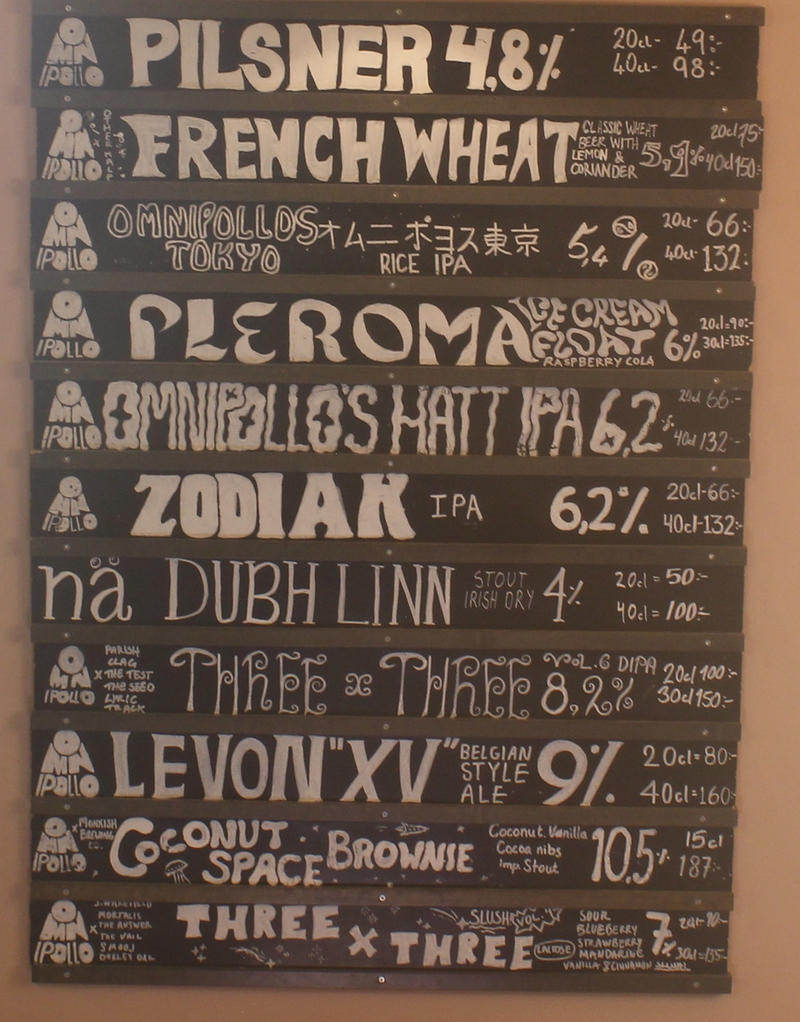 OMNIPOLLO PILSNER 4,8% 20cl- 49:-
40cl- 98:-
OMNIPOLLO OTHER HALF FRENCH WHEAT CLASSIC WHEAT BEER WITH LEMON & CORIANDER 5,1% 20cl 75-
40cl 150:-
OMNIPOLLO OMNIPOLLOS TOKYO オムニポヨス東京 RICE IPA 5,4% 20cl- 66:-
40cl- 132:-
OMNIPOLLO PLEROMA ICE CREAM FLOAT RASPBERRY COLA 6% 20cl=90:-
30cl=135:-
OMNIPOLLO OMNIPOLLO'S HATT IPA 6,2% 20cl 66:-
40cl 132:-
OMNIPOLLO ZODIAK IPA 6,2% 20cl-66:-
40cl-132:-
nä DUBH LINN STOUT IRISH DRY 4% 20cl = 50:-
40cl = 100:-
OMNIPOLLO X PARISH CLAG THE TEST THE SEED LYRIC TRACK THREE x THREE VOL.6 DIPA 8,2% 20cl 100:-
30cl 150:-
OMNIPOLLO LEVON "XV" BELGIAN STYLE ALE 9% 20cl=80:-
40cl=160:-
OMNIPOLLO x MONKISH BREWING CO. COCONUT SPACE BROWNIE Coconut. Vanilla Cocoa nibs imp. Stout 10,5% 15cl
187:-
OMNIPOLLO x MORTALIS THE ANSWER THE VEIL SMOOJ THREE X THREE SLUSH VOL. LACTOSE SOUR BLUEBERRY STRAWBERRY MANDARINE VANILLA & CINNAMON 7%
30cl=135-